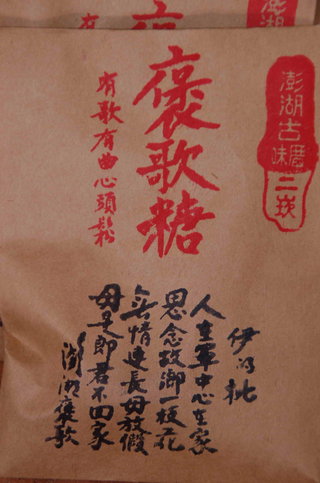 澎湖古厝味
二崁
褒歌糖
有歌有曲心頭鬆
伊的批
人在軍中心在家
思念故鄉一枝花
無情連長毋放假
毋是郎君不回家
澎湖褒歌